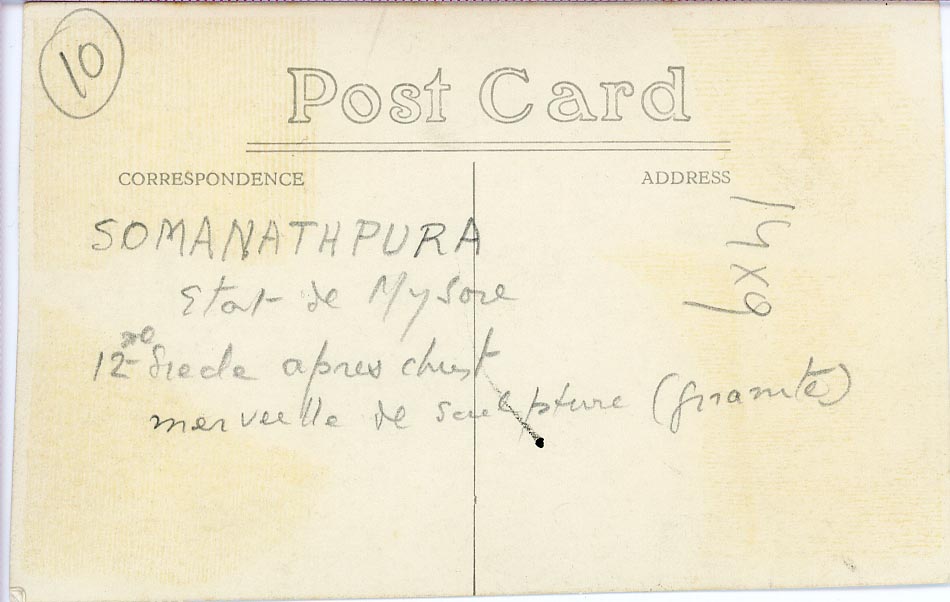 10
Post Card
CORRESPONDENCE
ADDRESS
SOMANATHPURA
Etat de Mysore
12me Siecle apres christ
merveille de sculpture (granite)
14x9